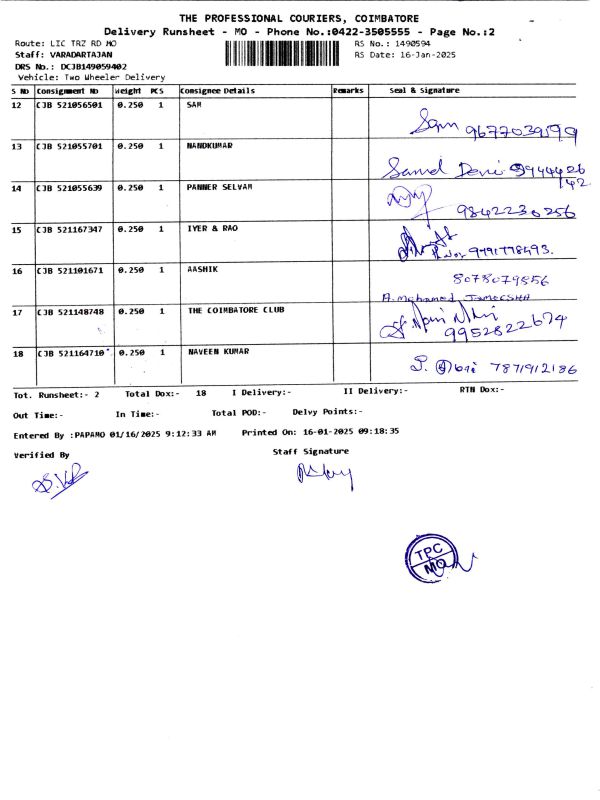 THE PROFESSIONAL COURIERS, COIMBATORE
Delivery Runsheet - MO - Phone No.:0422-3505555 - Page No.:2
Route: LIC TRZ RD MO RS No.: 1490594
Staff: VARADARTAJAN RS Date: 16-Jan-2025
DRS No.: DCJB149059402
Vehicle: Two Wheeler Delivery
S No Consignment No Weight PCS Consignee Details Remarks Seal & Signature
12 CJB 521056501 0.250 1 SAM
Sam 9677039599
13 CJB 521055701 0.250 1 NANDKUMAR
14 CJB 521055639 0.250 1 PANNER SELVAM
9842230256
15 CJB 521167347 0.250 1 IYER & RAO
9791778493.
16 CJB 521101671 0.250 1 AASHIK
8078079856
A. Mohamed
17 CJB 521148748 0.250 1 THE COIMBATORE CLUB
9952822674
18 CJB 521164710 0.250 1 NAVEEN KUMAR
7871912186
Tot. Runsheet:- 2 Total Dox:- 18 I Delivery:- II Delivery:- RTN Dox:-
Out Time:- In Time:- Total POD:- Delvy Points:-
Entered By :PAPAMO 01/16/2025 9:12:33 AM Printed On: 16-01-2025 09:18:35
Verified By Staff Signature
TPC
MO